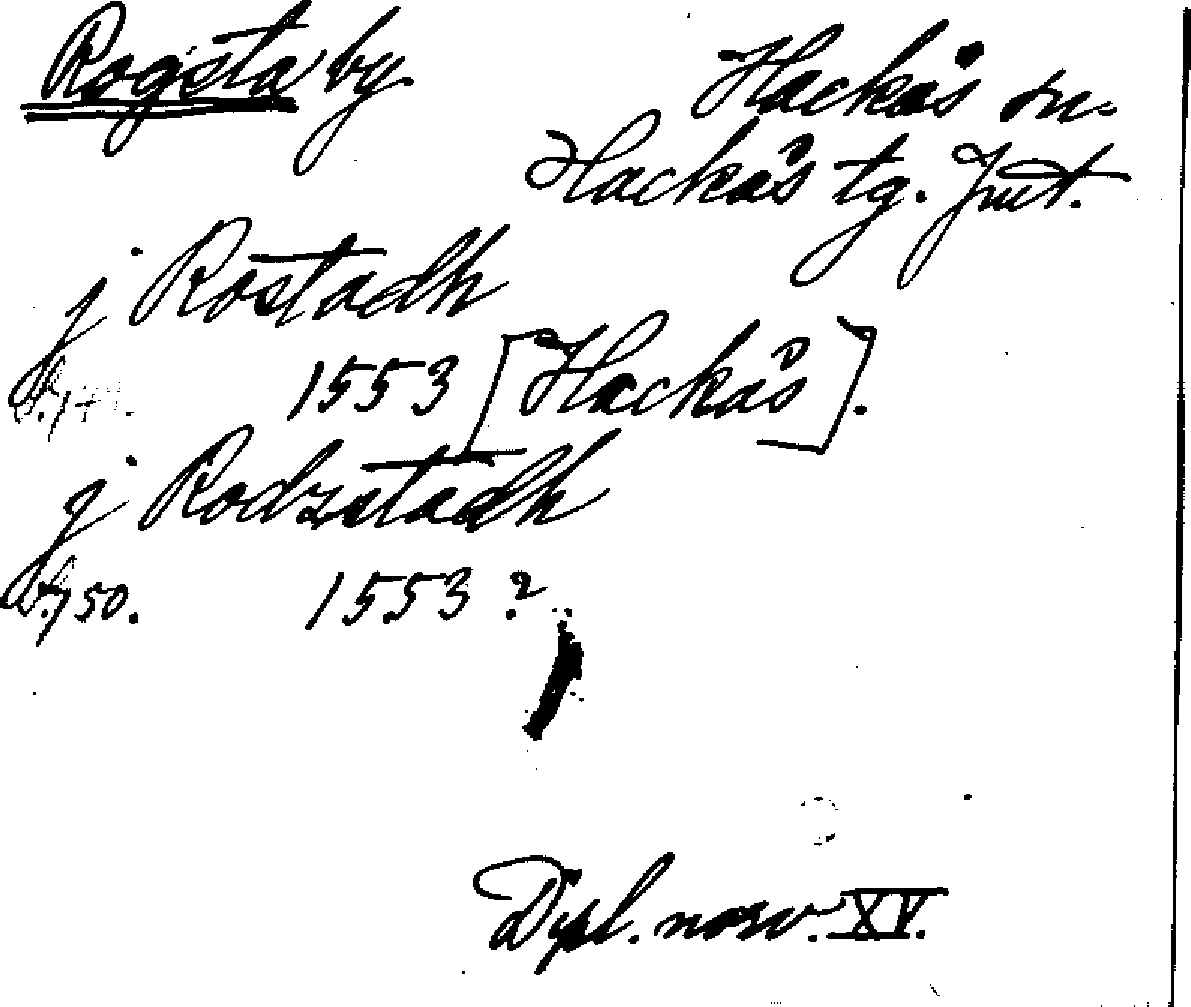 Rogsta by
Hackås sn.
Hackås tg. Jmt.
j Rostadh
1553 [Hackås].
j Rodzstadh
S. 750. 1553?
Dipl. norv. XV.